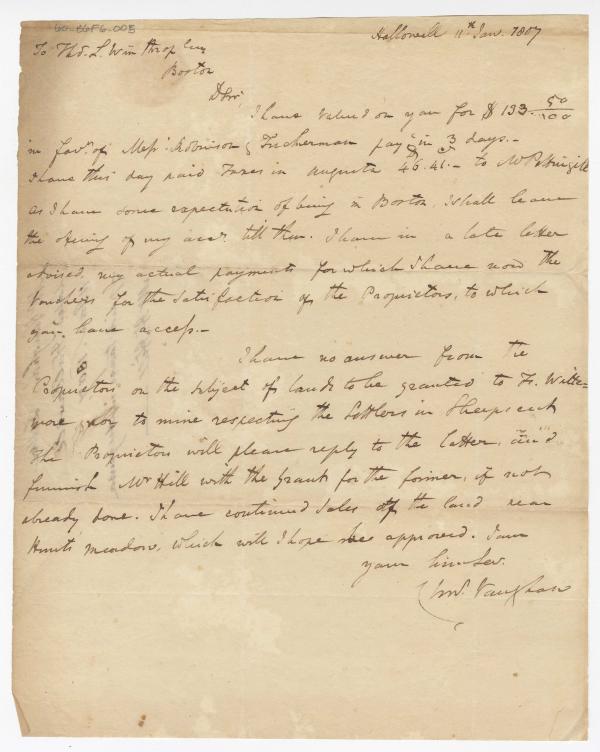 60-B6F6-005
Hallowell 11th Jany. 1807
To Tho. L. Winthrop Esqr
Boston
D Sir,
I have valued on you for $ 133. 50/100
in favr. of Messrs. Robinson & Tuckerman paye. in 3 days.-
I have this day paid Taxes in Augusta 46.41.- to Mr Pettingill
As I have some expectation of being in Boston, I shall leave
the closing of my acct. till then. I have in a late letter
advised my actual payments for which I have now the
Vouchers for the Satisfaction of the Proprietors, to which
you have access.-
I have no answer from the
Proprietors on the subject of lands to be granted to F. Witte=
more nor to mine respecting the Settlers in Sheepscutt
The Proprietors will please reply to the latter, and
furnish Mr Hill with the Grant for the former, if not
already done. I have continued Sales of the land near
Hunts meadow, which will I hope be approved. I am
your Sincler.
Vaughan